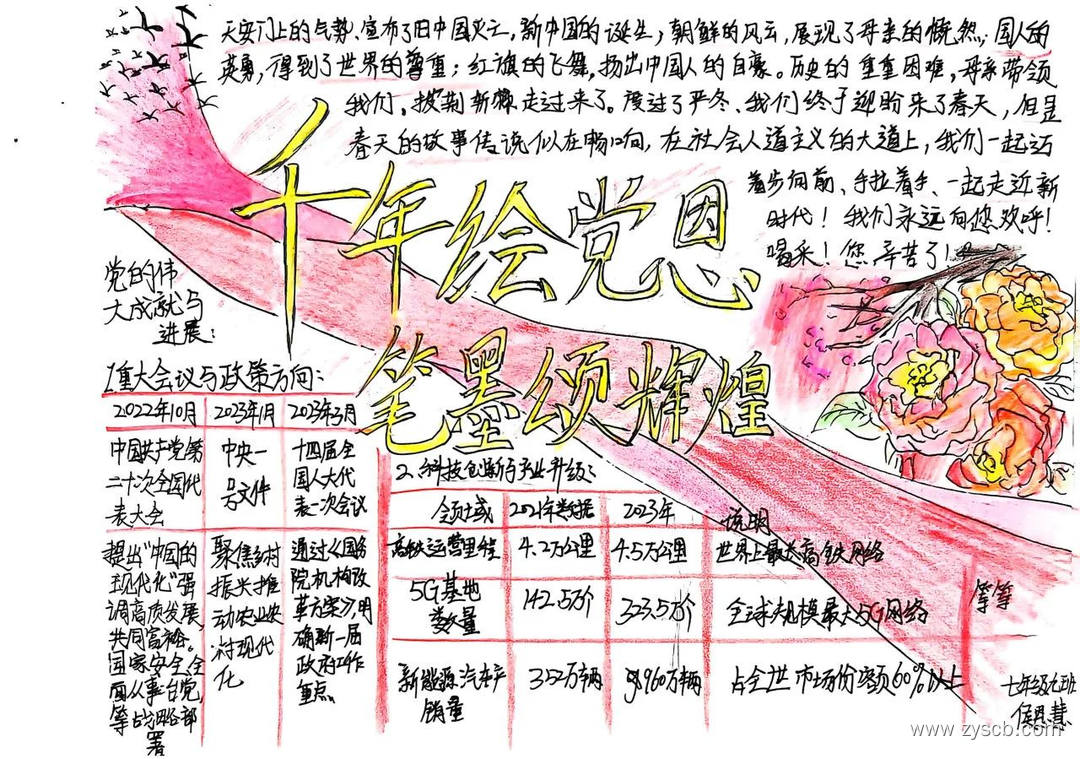 天安门上的气势、宣布了旧中国灭亡,新中国的诞生;朝鲜的风云,展现了母亲的慨然;国人的
英勇,得到了世界的尊重;红旗的飞舞,扬出中国人的自豪。历史的重重困难,母亲带领
我们。披荆斩棘走过来了。度过了严冬、我们终于迎盼来了春天,但是
春天的故事传说似在畅响,在社会人道主义的大道上,我们一起迈
着步向前、手拉着手、一起走近新
时代!我们永远向您欢呼!
喝采!您辛苦了!
千年绘党恩
笔墨颂辉煌
党的伟
大成就与
进展:
1重大会议与政策方向:
2022年10月 2023年1月 2023年3月
中国共产党第
二十次全国代
表大会
中央一
号文件
十四届全
国人大代
表一次会议
提出“中国的
现代化”强
调高质发展,
共同富裕。
国家安全,全
面从事台党,
等战略部
署
聚焦乡村
振兴推
动农业农
村现代
化
通过《国务
院机构改
革方案》明
确新一届
政府工作
重点。
2、科技创新与产业升级:
领域 2021年数据 2023年 说明
高铁运营里程 4.2万公里 4.5万公里 世界上最长高铁网络
5G基地
数量 142.5万个 323.5万个 全球规模最大5G网络
新能源汽车产
销量 352万辆 960万辆 占全世市场份额60%以上
等等
七年级九班
www.zyscb.com